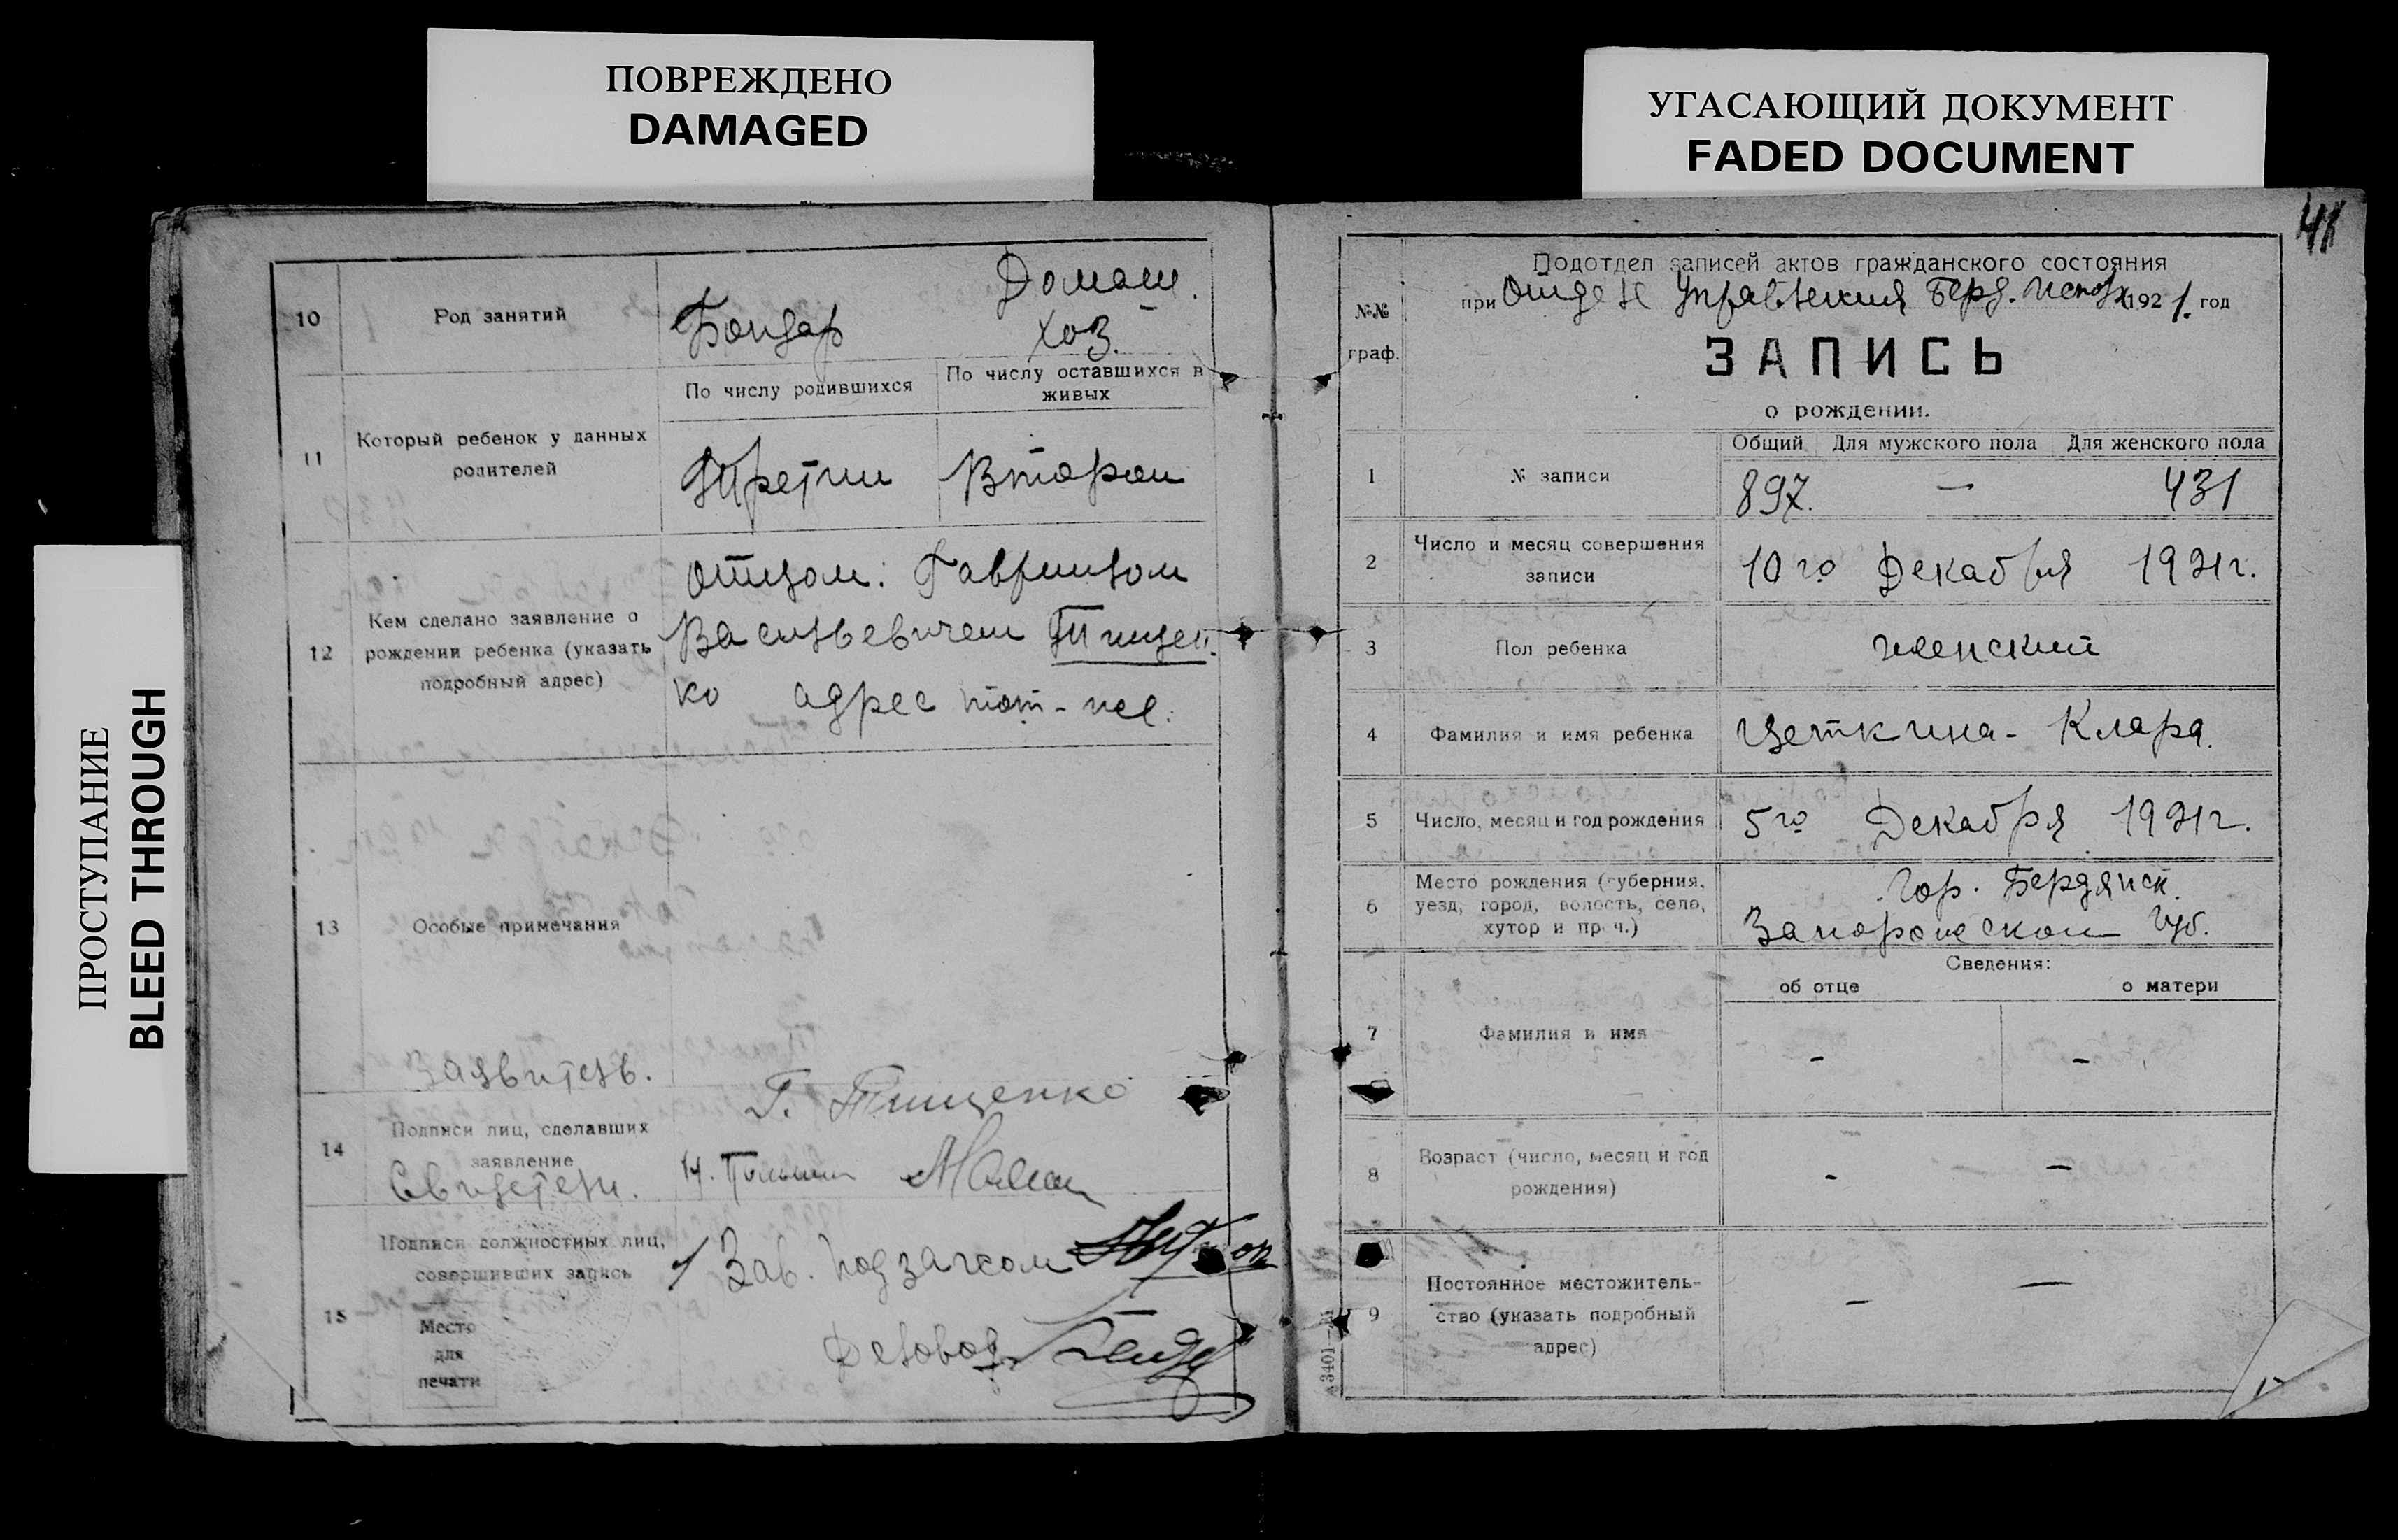 ПОВРЕЖДЕНО
DAMAGED
УГАСАЮЩИЙ ДОКУМЕНТ
FADED DOCUMENT
ПРОСТУПАНИЕ
BLEED THROUGH
10
Род занятий
Бондар
Домаш.
хоз.
11
Который ребенок у данных
родителей
По числу родившихся
По числу оставшихся в
живых
Третий
Второй
12
Кем сделано заявление о
рождении ребенка (указать
подробный адрес)
Отцом: Гавриилом
Васильевичем Тищен
ко адрес тот-же.
13
Особые примечания
Заявитель.
14
Подписи лиц, сделавших
заявление
Свидетели.
Г. Тищенко
15
Подписи должностных лиц,
совершивших запись
Место
для
печати
Зав. подзагсом
Деловод
41
№№
граф.
Подотдел записей актов гражданского состояния
при Отделе Управления Берд. 1921. год
ЗАПИСЬ
о рождении.
Общий Для мужского пола Для женского пола
1
№ записи
897. — 431
2
Число и месяц совершения
записи
10го Декабря 1921г.
3
Пол ребенка
женский
4
Фамилия и имя ребенка
Цеткина- Клара.
5
Число, месяц и год рождения
5го Декабря 1921г.
6
Место рождения (губерния,
уезд, город, волость, село,
хутор и проч.)
Гор. Бердянск.
Запорожской Губ.
Сведения:
об отце о матери
7
Фамилия и имя
- -
8
Возраст (число, месяц и год
рождения)
- -
9
Постоянное местожитель-
ство (указать подробный
адрес)
- —